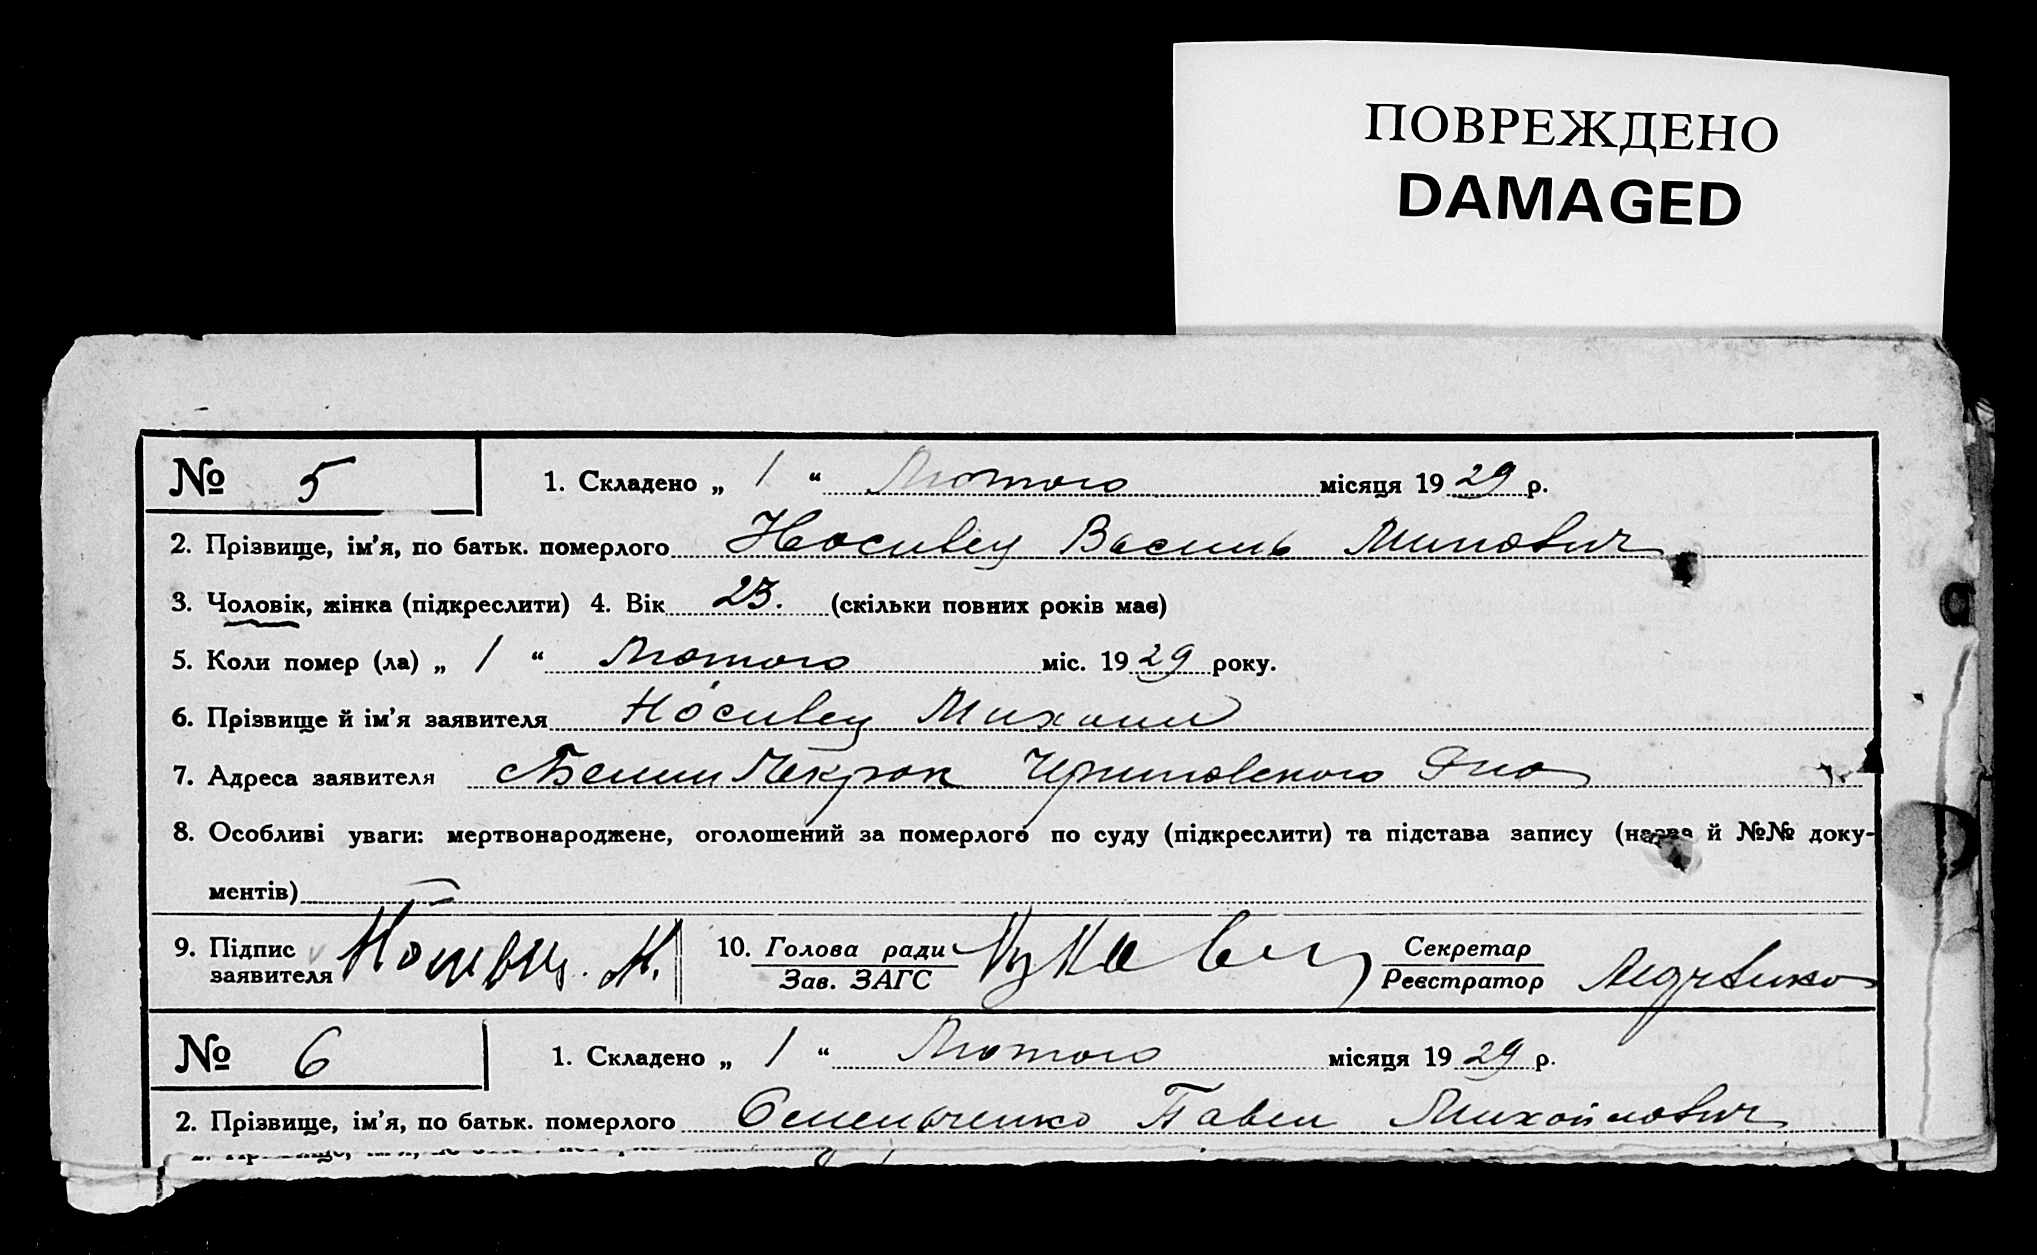 ПОВРЕЖДЕНО
DAMAGED
№ 5 1. Складено „ 1 “ Лютого місяця 1929 р.
2. Прізвище, ім’я, по батьк. померлого Носивец Василь Минович
3. Чоловік, жінка (підкреслити) 4. Вік 23. (скільки повних років має)
5. Коли помер (ла) „ 1 “ Лютого міс. 1929 року.
6. Прізвище й ім’я заявителя Носивец Михаил
7. Адреса заявителя
8. Особливі уваги: мертвонароджене, оголошений за померлого по суду (підкреслити) та підстава запису (назва й №№ доку-
ментів)
9. Підпис заявителя 10. Голова ради Зав. ЗАГС Секретар Реєстратор
№ 6 1. Складено „ 1 “ Лютого місяця 1929 р.
2. Прізвище, ім’я, по батьк. померлого Семенченко Павел Михайлович